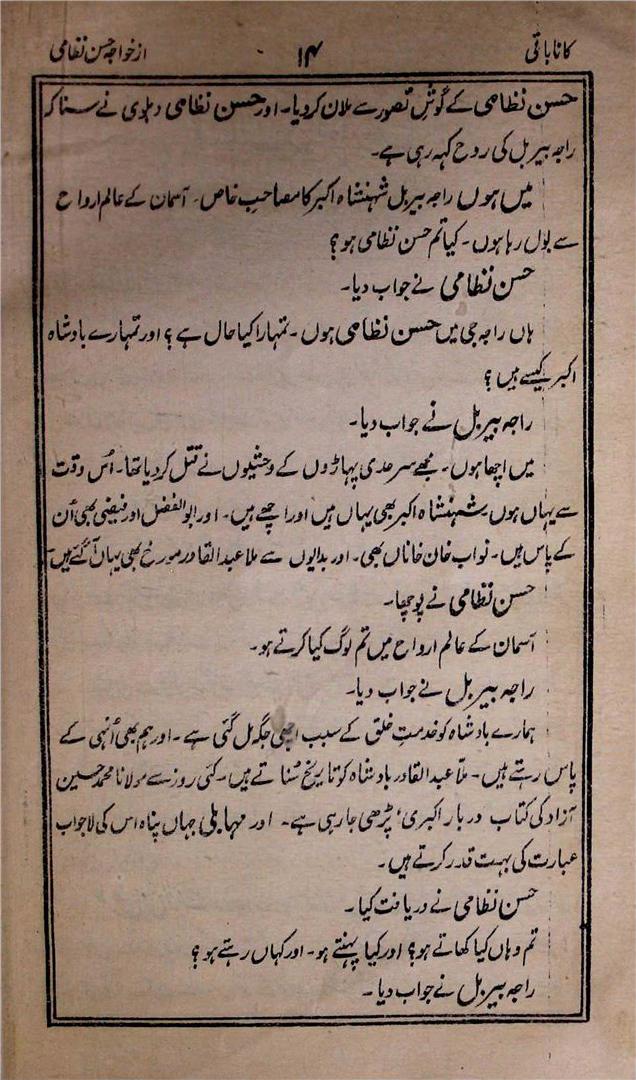 کانا باتی ۱۴ از خواجہ حسن نظامی
حسن نظامی کے گوشِ تصور سے ملان کر دیا۔ اور حسن نظامی دہلوی نے سنا کہ
راجہ بیربل کی روح کہہ رہی ہے۔
میں ہوں راجہ بیربل شہنشاہ اکبر کا مصاحب خاص۔ آسمان کے عالم ارواح
سے بول رہا ہوں۔ کیا تم حسن نظامی ہو؟
حسن نظامی نے جواب دیا۔
ہاں راجہ جی میں حسن نظامی ہوں۔ تمہارا کیا حال ہے؟ اور تمہارے بادشاہ
اکبر کیسے ہیں؟
راجہ بیربل نے جواب دیا۔
میں اچھا ہوں۔ مجھے سرحدی پہاڑوں کے وحشیوں نے قتل کر دیا تھا۔ اُس وقت
سے یہاں ہوں۔ شہنشاہ اکبر بھی یہاں ہیں اور اچھے ہیں۔ اور ابوالفضل اور فیضی بھی اُن
کے پاس ہیں۔ نواب خان خاناں بھی۔ اور بدایوں سے ملا عبدالقادر مورخ بھی یہاں آگئے ہیں۔
حسن نظامی نے پوچھا۔
آسمان کے عالم ارواح میں تم لوگ کیا کرتے ہو۔
راجہ بیربل نے جواب دیا۔
ہمارے بادشاہ کو خدمتِ خلق کے سبب اچھی جگہ مل گئی ہے۔ اور ہم بھی اُنہی کے
پاس رہتے ہیں۔ ملّا عبدالقادر بادشاہ کو تاریخ سُناتے ہیں۔ کئی روز سے مولانا محمد حسین
آزاد کی کتاب دربار اکبری، پڑھی جا رہی ہے۔ اور مہابلی جہاں پناہ اس کی لاجواب
عبارت کی بہت قدر کرتے ہیں۔
حسن نظامی نے دریافت کیا۔
تم وہاں کیا کھاتے ہو؟ اور کیا پہنتے ہو۔ اور کہاں رہتے ہو؟
راجہ بیربل نے جواب دیا۔